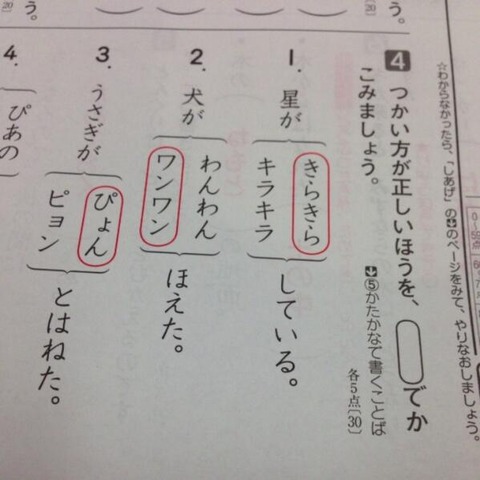 ☆わからなかったら、「しあげ」の⬇のページをみて、やりなおしましょう。
4 つかい方が正しいほうを、でか
こみましょう。
⬇⑤かたかなで書くことば
各5点〔30〕
1. 星が
きらきら
キラキラ
している。
2. 犬が
わんわん
ワンワン
ほえた。
3. うさぎが
ぴょん
ピョン
とはねた。
4.
ぴあの
う。
〔20〕
う。
〔20〕